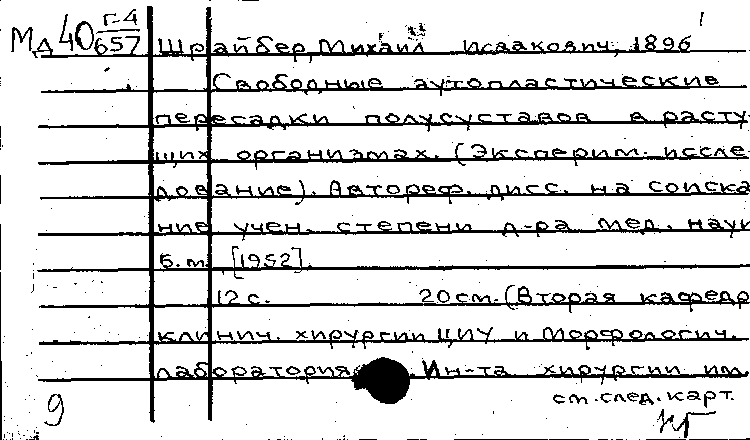 Мд 40 Г-4/657
Шрайбер, Михаил Исаакович, 1896
Свободные аутопластические
пересадки полусуставов в расту-
щих организмах. (Эксперим. иссле-
дование). Автореф. дисс. на соиска
ние учен. степени д-ра мед. наук
б.м. [1952].
12 с. 20 см. (Вторая кафедр
клинич. хирургии ЦИУ и Морфологич.
лаборатория Ин-та хирургии им.
см. след. карт.
9